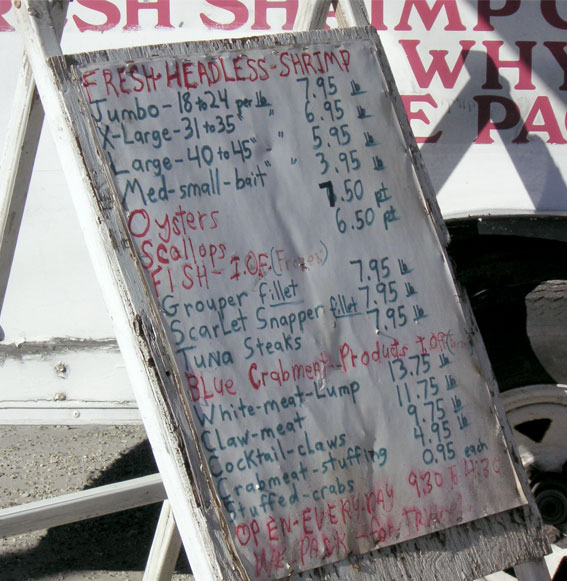 FRESH SHRIMP
WHY
PA
FRESH-HEADLESS-SHRIMP
Jumbo-18 to 24 per lb 7.95 lb
X-Large-31 to 35 " " 6.95 lb
Large-40 to 45 " " 5.95 lb
Med-small-bait 3.95 lb
Oysters 7.50 pt
Scallops 6.50 pt
FISH-I.Q.F. (Frozen)
Grouper fillet 7.95 lb
Scarlet Snapper fillet 7.95 lb
Tuna Steaks 7.95 lb
Blue Crabmeat-Products
White-meat-Lump 13.75 lb
Claw-meat 11.75 lb
Cocktail-claws 9.75 lb
Crabmeat-stuffing 4.95 lb
Stuffed-crabs 0.95 each
OPEN-EVERYDAY 9:30 To
WE PACK-FOR TRAVEL